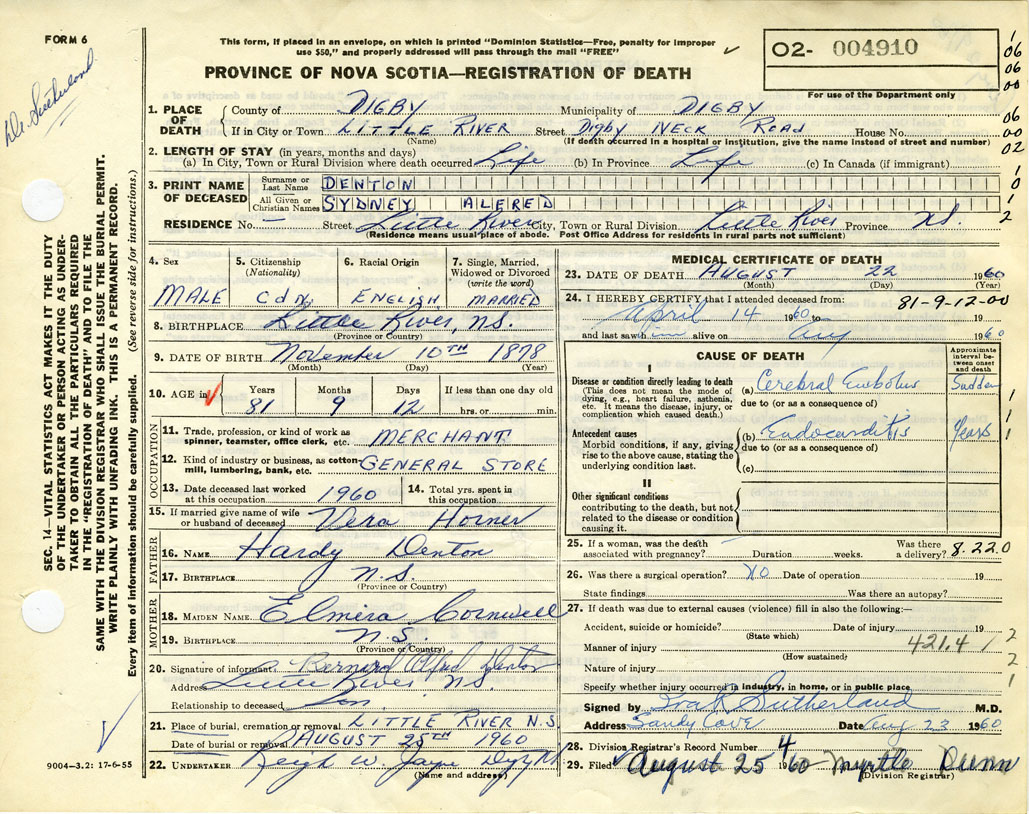 FORM 6
Dr. Sutherland
This form, if placed in an envelope, on which is printed "Dominion Statistics—Free, penalty for improper
use $50," and properly addressed will pass through the mail "FREE"
PROVINCE OF NOVA SCOTIA—REGISTRATION OF DEATH
02- 004910
For use of the Department only
1. PLACE OF DEATH
County of DIGBY Municipality of DIGBY
If in City or Town LITTLE RIVER Street Digby NECK ROAD House No.
(Name) (If death occurred in a hospital or institution, give the name instead of street and number)
2. LENGTH OF STAY (in years, months and days)
(a) In City, Town or Rural Division where death occurred Life (b) In Province Life (c) In Canada (if immigrant)
3. PRINT NAME OF DECEASED
Surname or Last Name DENTON
All Given or Christian Names SYDNEY ALFRED
RESIDENCE No. — Street Little River City, Town or Rural Division Little River Province N.S.
(Residence means usual place of abode. Post Office Address for residents in rural parts not sufficient)
SEC. 14—VITAL STATISTICS ACT MAKES IT THE DUTY
OF THE UNDERTAKER OR PERSON ACTING AS UNDER-
TAKER TO OBTAIN ALL THE PARTICULARS REQUIRED
IN THE "REGISTRATION OF DEATH" AND TO FILE THE
SAME WITH THE DIVISION REGISTRAR WHO SHALL ISSUE THE BURIAL PERMIT.
WRITE PLAINLY WITH UNFADING INK. THIS IS A PERMANENT RECORD.
Every item of information should be carefully supplied. (See reverse side for instructions.)
4. Sex MALE
5. Citizenship (Nationality) Cdn
6. Racial Origin ENGLISH
7. Single, Married, Widowed or Divorced (write the word) MARRIED
8. BIRTHPLACE Little River, N.S.
(Province or Country)
9. DATE OF BIRTH November 10TH 1878
(Month) (Day) (Year)
10. AGE in Years 81 Months 9 Days 12 If less than one day old hrs. or min.
OCCUPATION
11. Trade, profession, or kind of work as spinner, teamster, office clerk, etc. MERCHANT
12. Kind of industry or business, as cotton-mill, lumbering, bank, etc. GENERAL STORE
13. Date deceased last worked at this occupation 1960 14. Total yrs. spent in this occupation
15. If married give name of wife or husband of deceased Vera Horner
FATHER
16. NAME Hardy Denton
17. BIRTHPLACE N.S.
(Province or Country)
MOTHER
18. MAIDEN NAME Elmira Cornwell
19. BIRTHPLACE N.S.
(Province or Country)
20. Signature of informant Bernard Alfred Denton
Address Little River N.S.
Relationship to deceased Son
21. Place of burial, cremation or removal LITTLE RIVER N.S.
Date of burial or removal AUGUST 25TH 1960
22. UNDERTAKER W. Jayne
(Name and address)
9004—3.2: 17-6-55
MEDICAL CERTIFICATE OF DEATH
23. DATE OF DEATH AUGUST 22 1960
(Month) (Day) (Year)
24. I HEREBY CERTIFY that I attended deceased from: 81-9-12-00
April 14 1960 to 19
and last saw h alive on Aug 1960
CAUSE OF DEATH
Approximate interval between onset and death
I
Disease or condition directly leading to death
(This does not mean the mode of dying, e.g., heart failure, asthenia, etc. It means the disease, injury, or complication which caused death.)
(a) Cerebral Embolus Sudden
due to (or as a consequence of)
Antecedent causes
Morbid conditions, if any, giving rise to the above cause, stating the underlying condition last.
(b) Endocarditis Years
due to (or as a consequence of)
(c)
II
Other significant conditions contributing to the death, but not related to the disease or condition causing it.
25. If a woman, was the death associated with pregnancy? Duration weeks. Was there a delivery? 8.22.0
26. Was there a surgical operation? NO Date of operation 19
State findings Was there an autopsy?
27. If death was due to external causes (violence) fill in also the following:—
Accident, suicide or homicide? Date of injury 19
(State which)
Manner of injury 421.4
(How sustained)
Nature of injury
Specify whether injury occurred in industry, in home, or in public place
Signed by Ira R Sutherland M.D.
Address Sandy Cove Date Aug 23 1960
28. Division Registrar's Record Number 4
29. Filed August 25 1960 Myrtle Dunn
(Division Registrar)
1
06
06
00
06
00
02
1
0
1
2
1
1
1
1 2
2
1